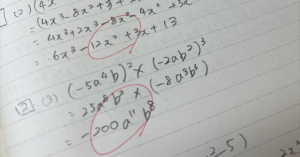 (2) (4x
= (4x³ - 8x² + 3 +
= 4x³ + 2x³ - 8x² - 4x² + 3x
= 6x³ - 12x² + 3x + 13
[2] (3) (-5a⁴b)² × (-2ab²)³
= 25a⁸b² × (-8a³b⁶)
= -200a¹¹b⁸